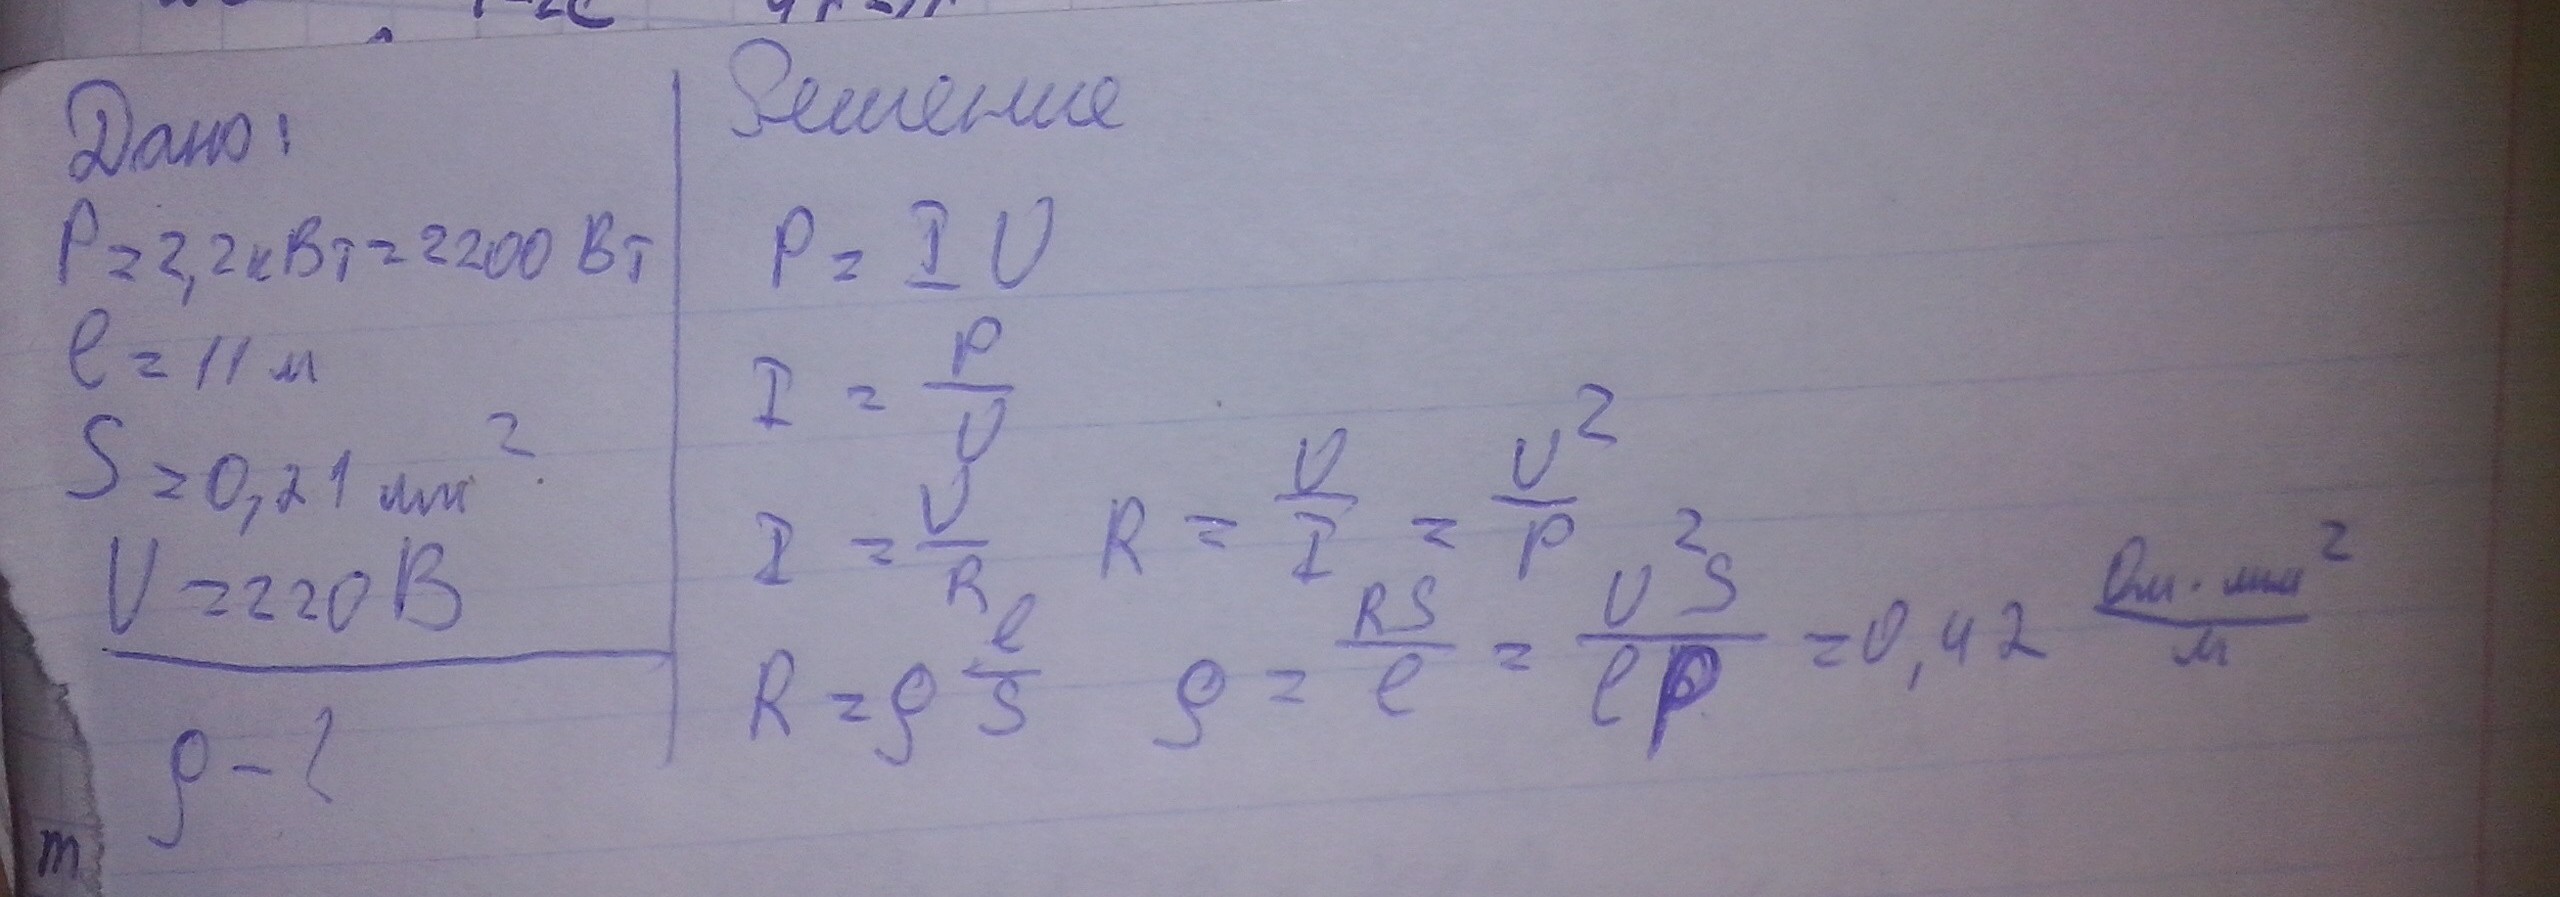 Дано:
P = 2,2 кВт = 2200 Вт
l = 11 м
S = 0,21 мм²
U = 220 В
ρ - ?
Решение
P = I U
I = P/U
I = U/R R = U/I = U²/P
R = ρ l/S ρ = RS/l = U²S/lP = 0,42 Ом · мм²/м
m